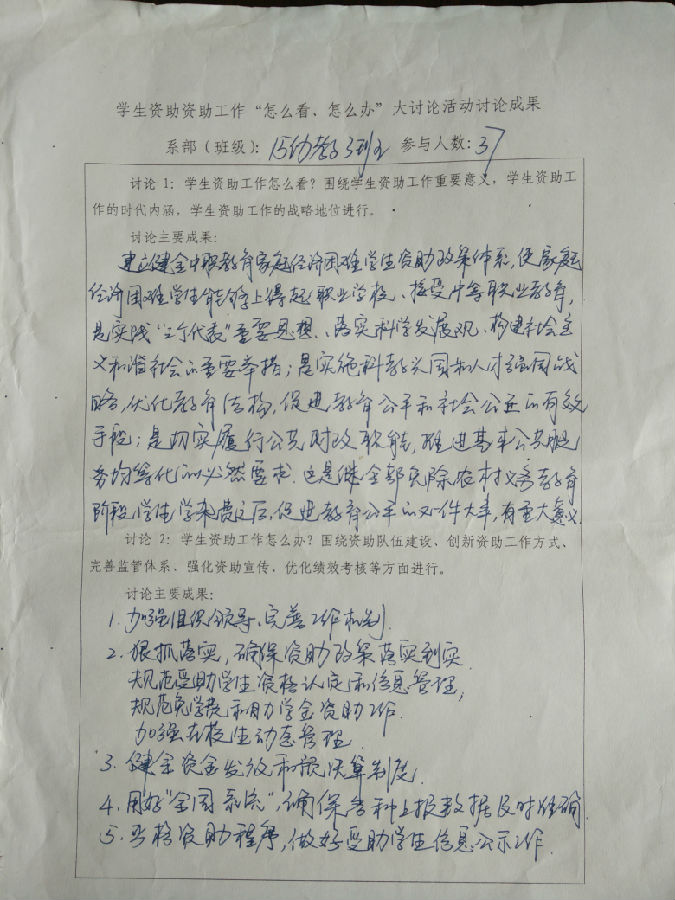 学生资助资助工作“怎么看、怎么办”大讨论活动讨论成果
系部（班级）：15幼教3班 参与人数：37
讨论 1：学生资助工作怎么看？围绕学生资助工作重要意义，学生资助工
作的时代内涵，学生资助工作的战略地位进行。
讨论主要成果：
建立健全中职教育家庭经济困难学生资助政策体系，使家庭
经济困难学生能够上得起职业学校、接受中等职业教育，
是实践“三个代表”重要思想、落实科学发展观、构建社会主
义和谐社会的重要举措；是实施科教兴国和人才强国战
略，优化教育结构，促进教育公平和社会公正的有效
手段；是切实履行公共财政职能，推进基本公共服
务均等化的必然要求。这是继全部免除农村义务教育
阶段学生学杂费之后，促进教育公平的又一件大事，有重大意义
讨论 2：学生资助工作怎么办？围绕资助队伍建设、创新资助工作方式、
完善监管体系、强化资助宣传，优化绩效考核等方面进行。
讨论主要成果：
1. 加强组织领导、完善工作机制
2. 狠抓落实，确保资助政策落实到实
规范受助学生资格认定和信息管理；
规范免学费和助学金资助工作
加强在校生动态管理
3. 健全资金发放和预决算制度
4. 用好“全国系统”，确保各科上报数据及时准确
5. 严格资助程序，做好受助学生信息公示工作